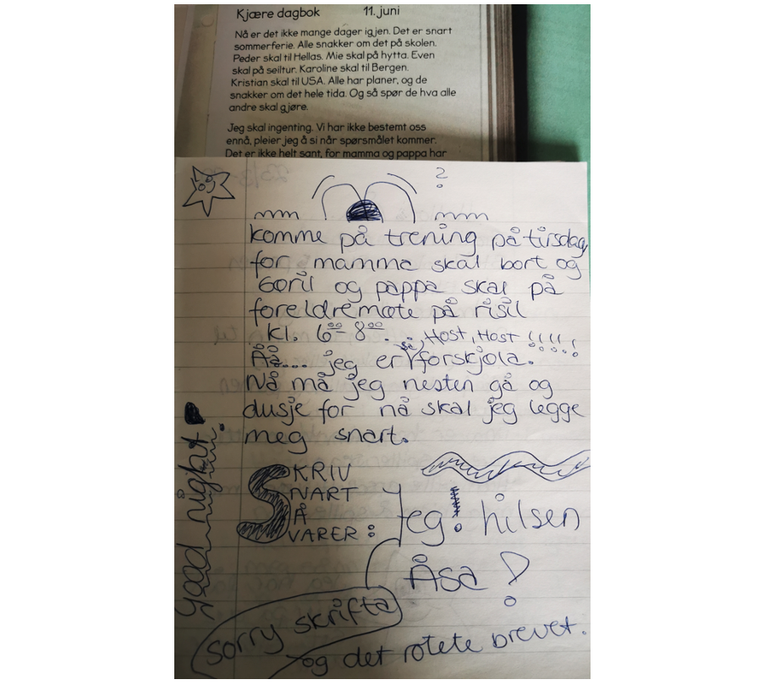 Kjære dagbok 11. juni
Nå er det ikke mange dager igjen. Det er snart
sommerferie. Alle snakker om det på skolen.
Peder skal til Hellas. Mie skal på hytta. Even
skal på seiltur. Karoline skal til Bergen.
Kristian skal til USA. Alle har planer, og de
snakker om det hele tida. Og så spør de hva alle
andre skal gjøre.
Jeg skal ingenting. Vi har ikke bestemt oss
ennå, pleier jeg å si når spørsmålet kommer.
Det er ikke helt sant, for mamma og pappa har
?
komme på trening på tirsdag
for mamma skal bort og
Goril og pappa skal på
foreldremøte på risil
kl. 6⁰⁰-8⁰⁰.
Åå.... jeg er så forskjøla. Høst, Høst !!!!!
Nå må jeg nesten gå og
dusje for nå skal jeg legge
meg snart.
Good night
SKRIV
SNART
SÅ
SVARER:
Jeg! hilsen
Åsa!
sorry skrifta
og det rotete brevet.